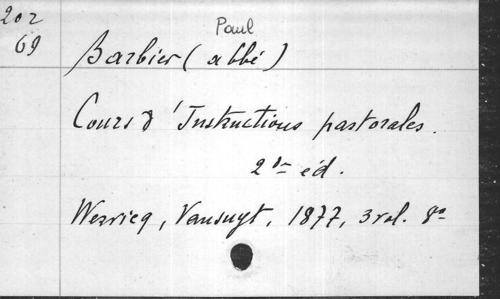 202
69
Paul
Barbier (abbé)
Cours d'Instructions pastorales.
2de éd.
Wervicq, Vansuyt, 1877, 3 vol. 8o